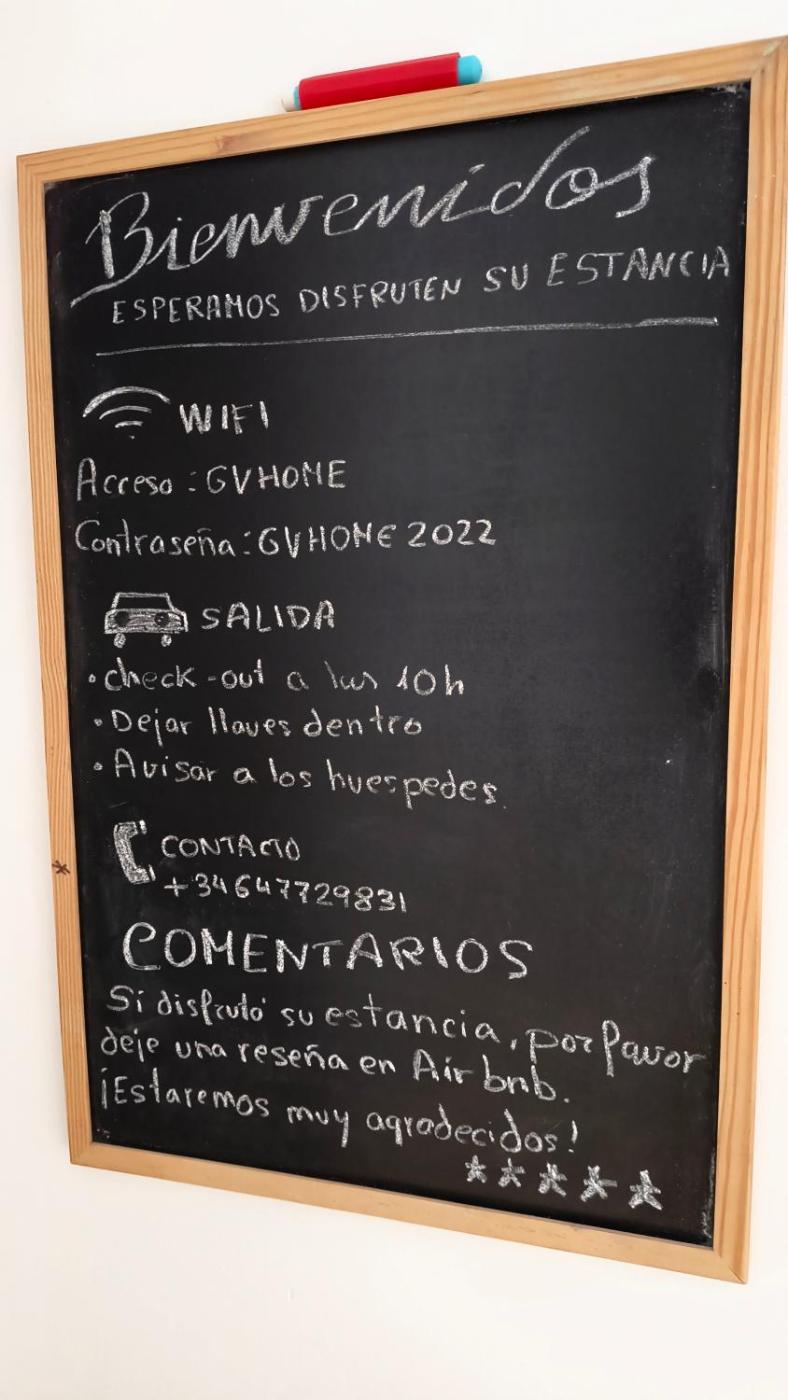 Bienvenidos
ESPERAMOS DISFRUTEN SU ESTANCIA
WIFI
Acceso : GVHOME
Contraseña: GVHOME 2022
SALIDA
• check-out a las 10h
• Dejar llaves dentro
• Avisar a los huespedes.
CONTACTO
+34647729831
COMENTARIOS
Sí disfrutó su estancia, por favor
deje una reseña en Air bnb.
¡Estaremos muy agradecidos!